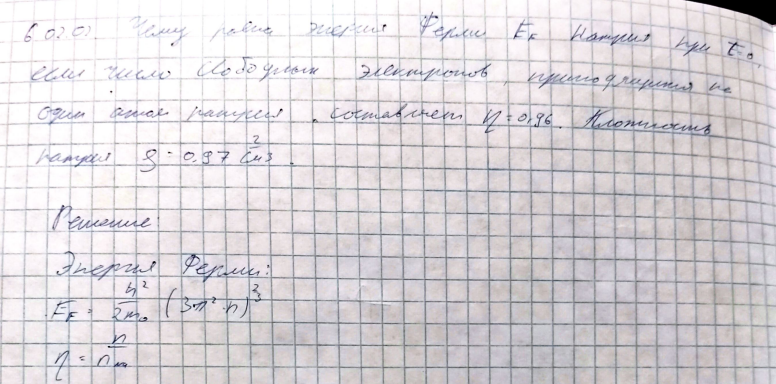 6.02.01. Чему равна энергия Ферми E_F натрия при t=0,
если число свободных электронов, приходящихся на
один атом натрия, составляет η = 0,96. Плотность
натрия ρ = 0.97 г/см3.
Решение:
Энергия Ферми:
E_F = ħ²/2m₀ (3π²·n)^2/3
η = n/n